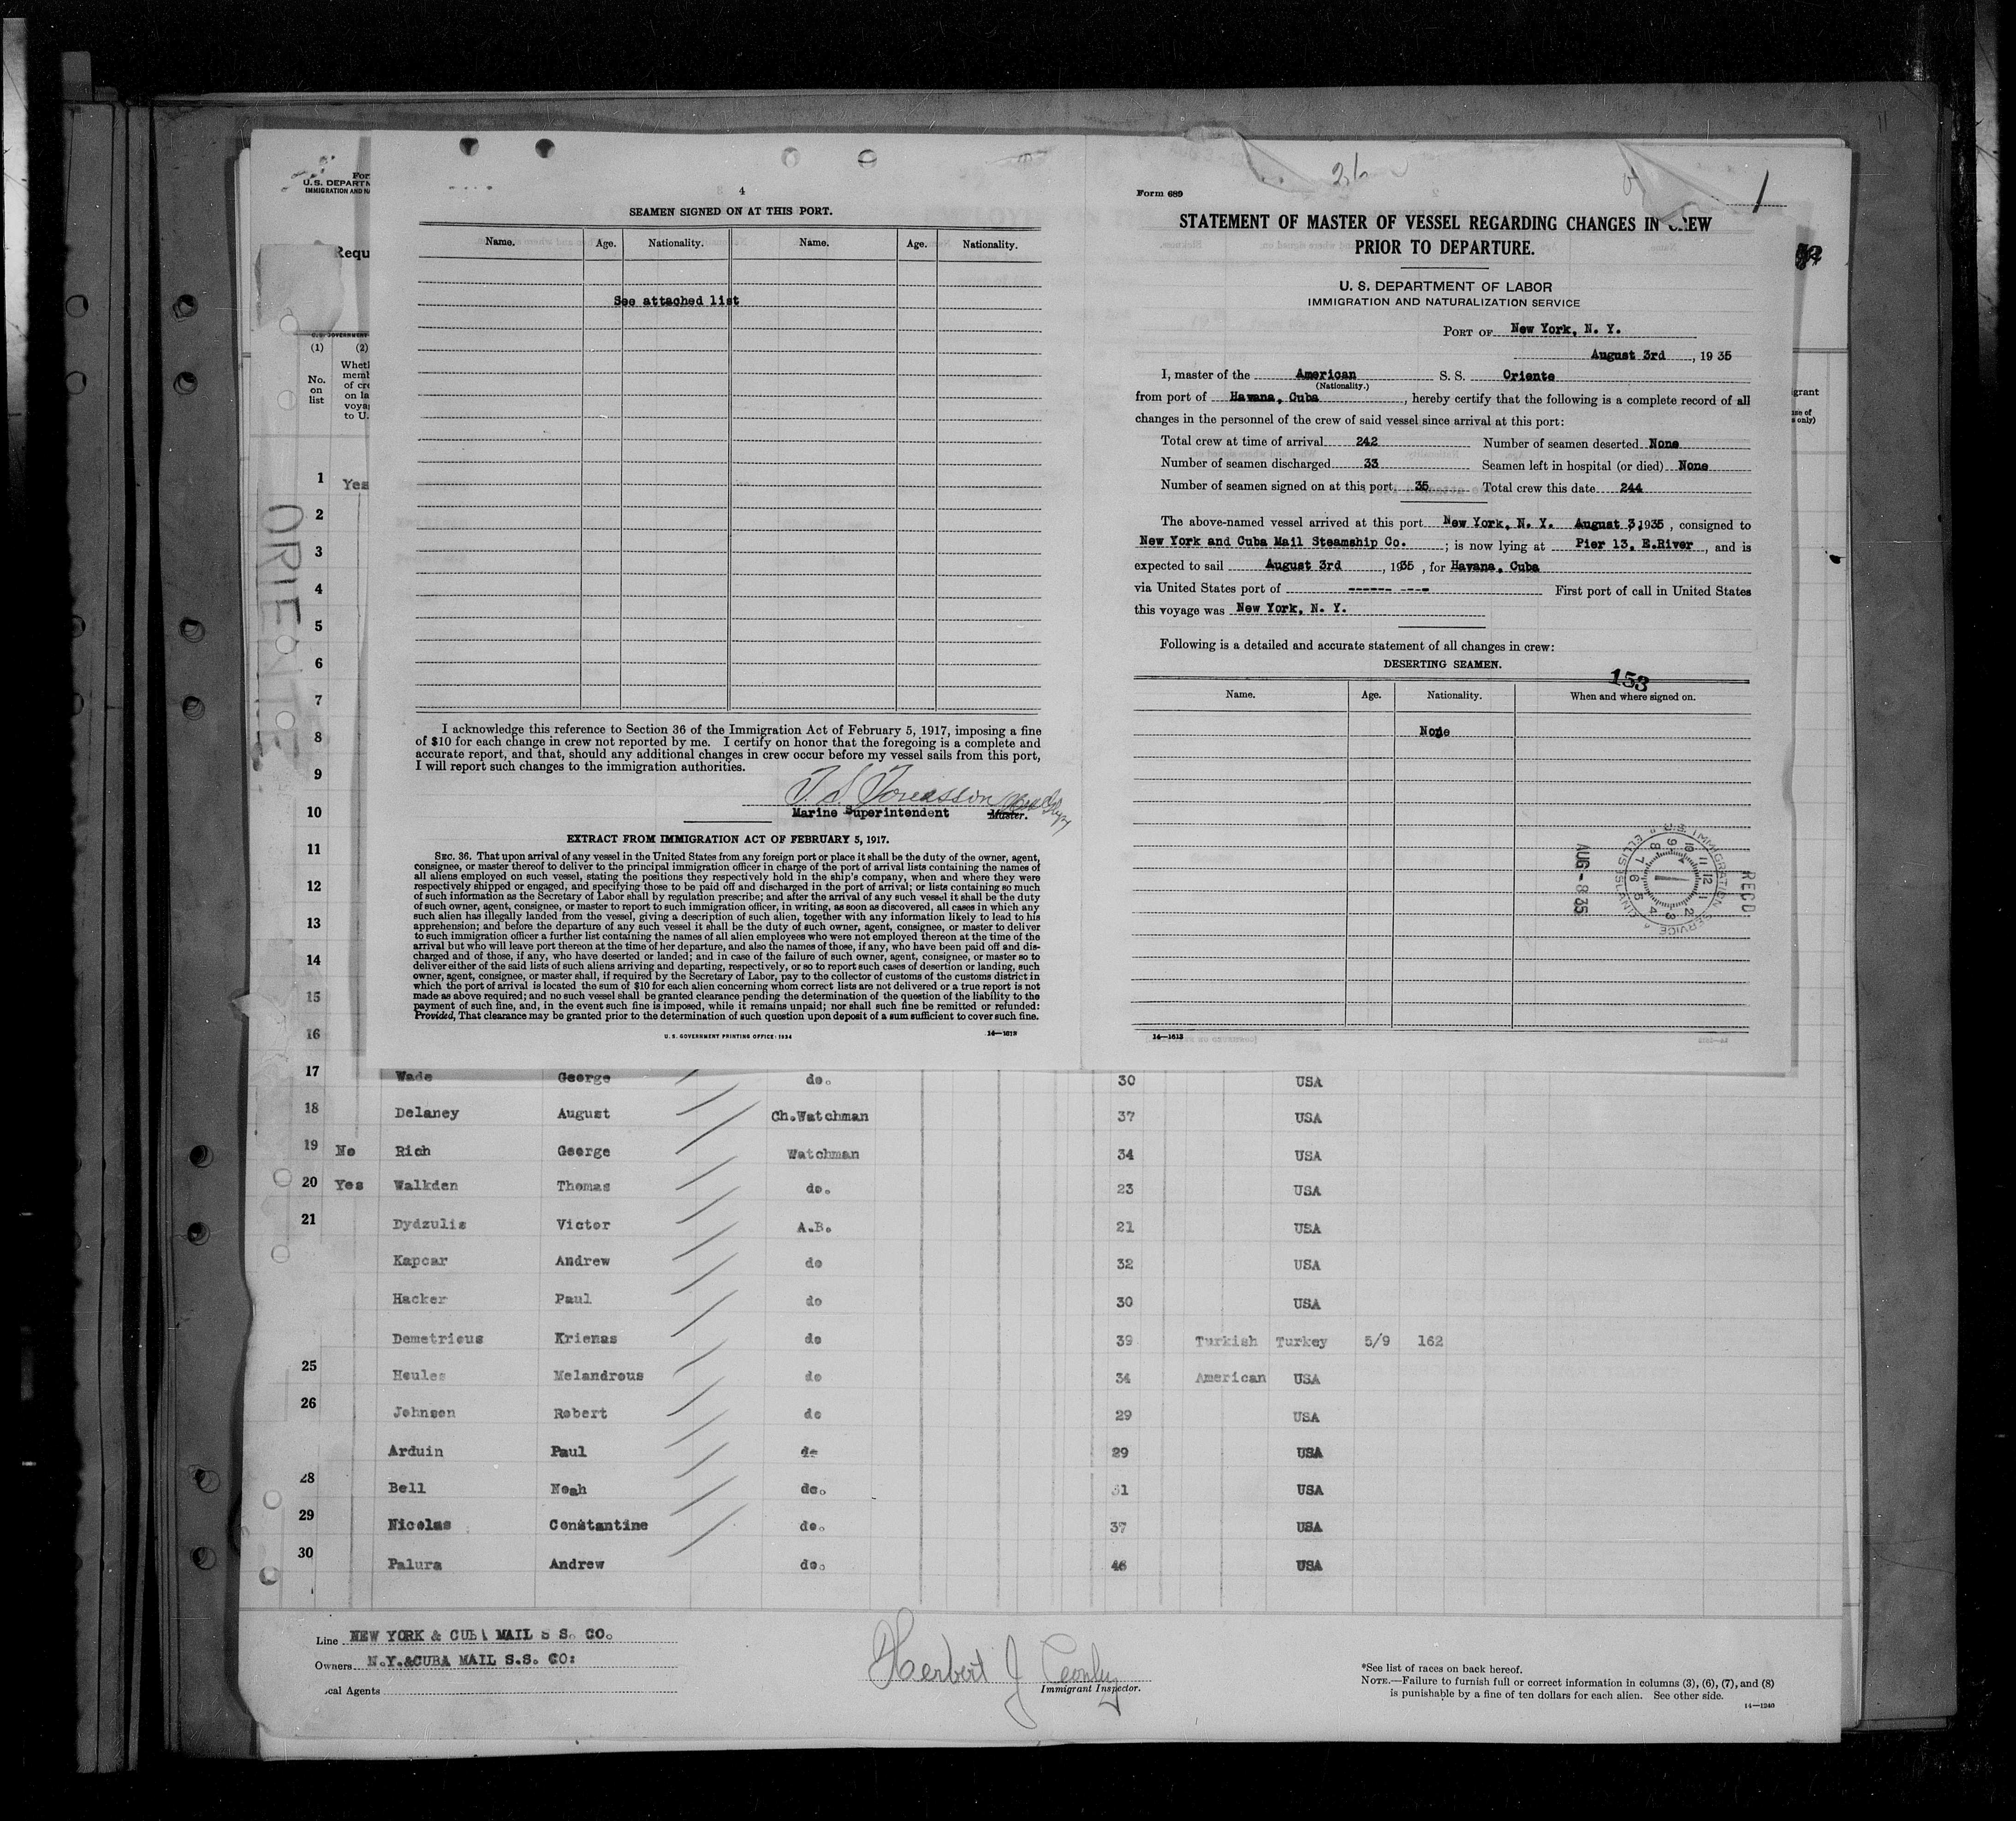 4
SEAMEN SIGNED ON AT THIS PORT.
Name. Age. Nationality. Name. Age. Nationality.
See attached list
I acknowledge this reference to Section 36 of the Immigration Act of February 5, 1917, imposing a fine
of $10 for each change in crew not reported by me. I certify on honor that the foregoing is a complete and
accurate report, and that, should any additional changes in crew occur before my vessel sails from this port,
I will report such changes to the immigration authorities.
Marine Superintendent Master.
EXTRACT FROM IMMIGRATION ACT OF FEBRUARY 5, 1917.
SEC. 36. That upon arrival of any vessel in the United States from any foreign port or place it shall be the duty of the owner, agent,
consignee, or master thereof to deliver to the principal immigration officer in charge of the port of arrival lists containing the names of
all aliens employed on such vessel, stating the positions they respectively hold in the ship's company, when and where they were
respectively shipped or engaged, and specifying those to be paid off and discharged in the port of arrival; or lists containing so much
of such information as the Secretary of Labor shall by regulation prescribe; and after the arrival of any such vessel it shall be the duty
of such owner, agent, consignee, or master to report to such immigration officer, in writing, as soon as discovered, all cases in which any
such alien has illegally landed from the vessel, giving a description of such alien, together with any information likely to lead to his
apprehension; and before the departure of any such vessel it shall be the duty of such owner, agent, consignee, or master to deliver
to such immigration officer a further list containing the names of all alien employees who were not employed thereon at the time of the
arrival but who will leave port thereon at the time of her departure, and also the names of those, if any, who have been paid off and dis-
charged and of those, if any, who have deserted or landed; and in case of the failure of such owner, agent, consignee, or master so to
deliver either of the said lists of such aliens arriving and departing, respectively, or so to report such cases of desertion or landing, such
owner, agent, consignee, or master shall, if required by the Secretary of Labor, pay to the collector of customs of the customs district in
which the port of arrival is located the sum of $10 for each alien concerning whom correct lists are not delivered or a true report is not
made as above required; and no such vessel shall be granted clearance pending the determination of the question of the liability to the
payment of such fine, and, in the event such fine is imposed, while it remains unpaid; nor shall such fine be remitted or refunded:
Provided, That clearance may be granted prior to the determination of such question upon deposit of a sum sufficient to cover such fine.
U. S. GOVERNMENT PRINTING OFFICE: 1934 14—1613
Form 689
1
STATEMENT OF MASTER OF VESSEL REGARDING CHANGES IN CREW
PRIOR TO DEPARTURE.
U. S. DEPARTMENT OF LABOR
IMMIGRATION AND NATURALIZATION SERVICE
PORT OF New York, N. Y.
August 3rd, 1935
I, master of the American S. S. Oriente
(Nationality.)
from port of Havana, Cuba, hereby certify that the following is a complete record of all
changes in the personnel of the crew of said vessel since arrival at this port:
Total crew at time of arrival 242 Number of seamen deserted None
Number of seamen discharged 33 Seamen left in hospital (or died) None
Number of seamen signed on at this port 35 Total crew this date 244
The above-named vessel arrived at this port New York, N. Y. August 3, 1935, consigned to
New York and Cuba Mail Steamship Co.; is now lying at Pier 13, E.River, and is
expected to sail August 3rd, 1935, for Havana, Cuba
via United States port of ------ ---- First port of call in United States
this voyage was New York, N. Y.
Following is a detailed and accurate statement of all changes in crew:
DESERTING SEAMEN.
153
Name. Age. Nationality. When and where signed on.
None
RECD
U.S. IMMIGRATION SERVICE
ELLIS ISLAND
AUG - 8 35
14—1613
For
U.S. DEPARTM
IMMIGRATION AND NA
Requ
U.S. GOVERNMENT
(1) (2)
No.
on
list
Wheth
memb
of cre
on la
voyag
to U.
grant
use of
s only)
ORIENTE
1 Yes
2
3
4
5
6
7
8
9
10
11
12
13
14
15
16
17 Wade George do. 30 USA
18 Delaney August Ch.Watchman 37 USA
19 No Rich George Watchman 34 USA
20 Yes Walkden Thomas do. 23 USA
21 Dydzulis Victor A.B. 21 USA
Kapcar Andrew do 32 USA
Hacker Paul do 30 USA
Demetrious Krienas do 39 Turkish Turkey 5/9 162
25 Houles Melandrous do 34 American USA
26 Johnson Robert do 29 USA
Arduin Paul do 29 USA
28 Bell Noah do. 31 USA
29 Nicolas Constantine do. 37 USA
30 Palura Andrew do. 46 USA
Line NEW YORK & CUBA MAIL S S. CO.
Owners N.Y.&CUBA MAIL S.S. CO:
cal Agents
Herbert J
Immigrant Inspector.
*See list of races on back hereof.
NOTE.—Failure to furnish full or correct information in columns (3), (6), (7), and (8)
is punishable by a fine of ten dollars for each alien. See other side.
14—1240